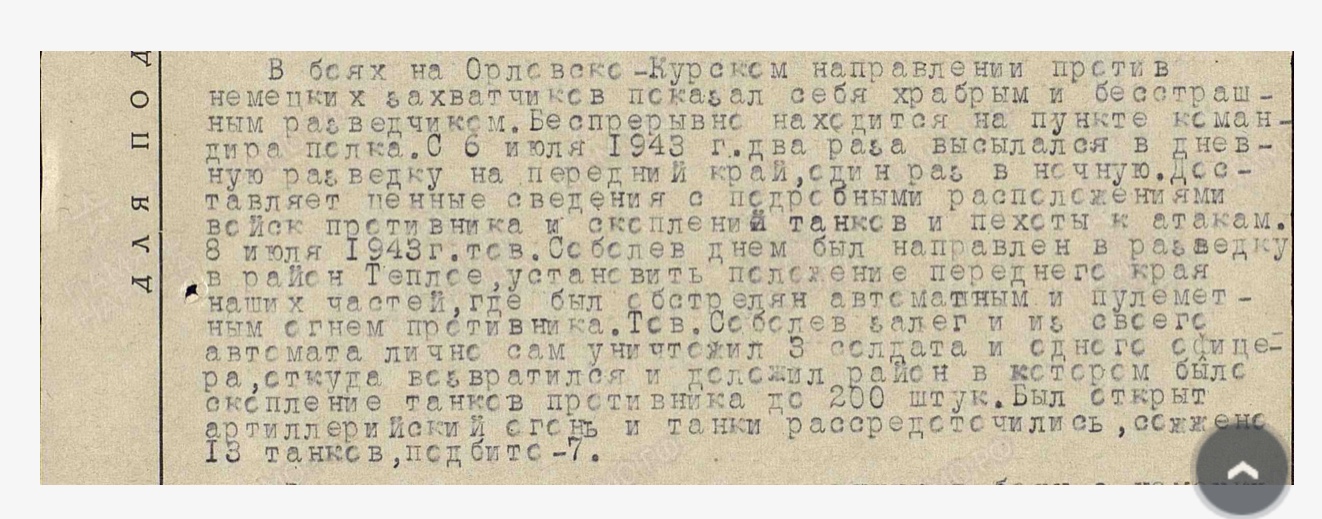 ДЛЯ ПОД
В боях на Орловско-Курском направлении против
немецких захватчиков показал себя храбрым и бесстраш-
ным разведчиком.Беспрерывно находится на пункте коман-
дира полка.С 6 июля 1943 г.два раза высылался в днев-
ную разведку на передний край,один раз в ночную.Дос-
тавляет ценные сведения с подробными расположениями
войск противника и скоплений танков и пехоты к атакам.
8 июля 1943г.тов.Соболев днем был направлен в разведку
в район Теплое,установить положение переднего края
наших частей,где был обстрелян автоматным и пулемет-
ным огнем противника.Тов.Соболев залег и из своего
автомата лично сам уничтожил 3 солдата и одного офице-
ра,откуда возвратился и доложил район в котором было
скопление танков противника до 200 штук.Был открыт
артиллерийский огонь и танки рассредоточились,сожжено
13 танков,подбито-7.